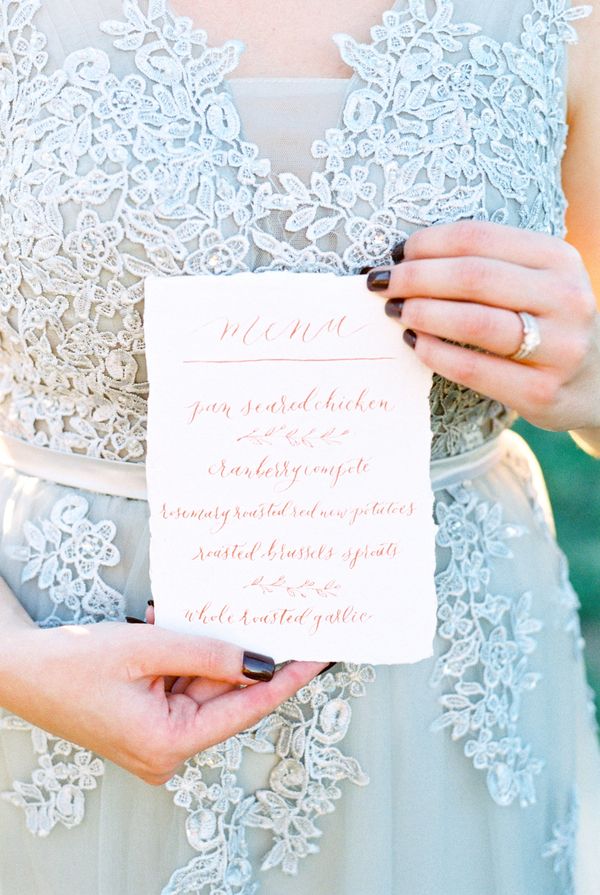 menu
pan seared chicken
cranberry compote
rosemary roasted red new potatoes
roasted brussels sprouts
whole roasted garlic